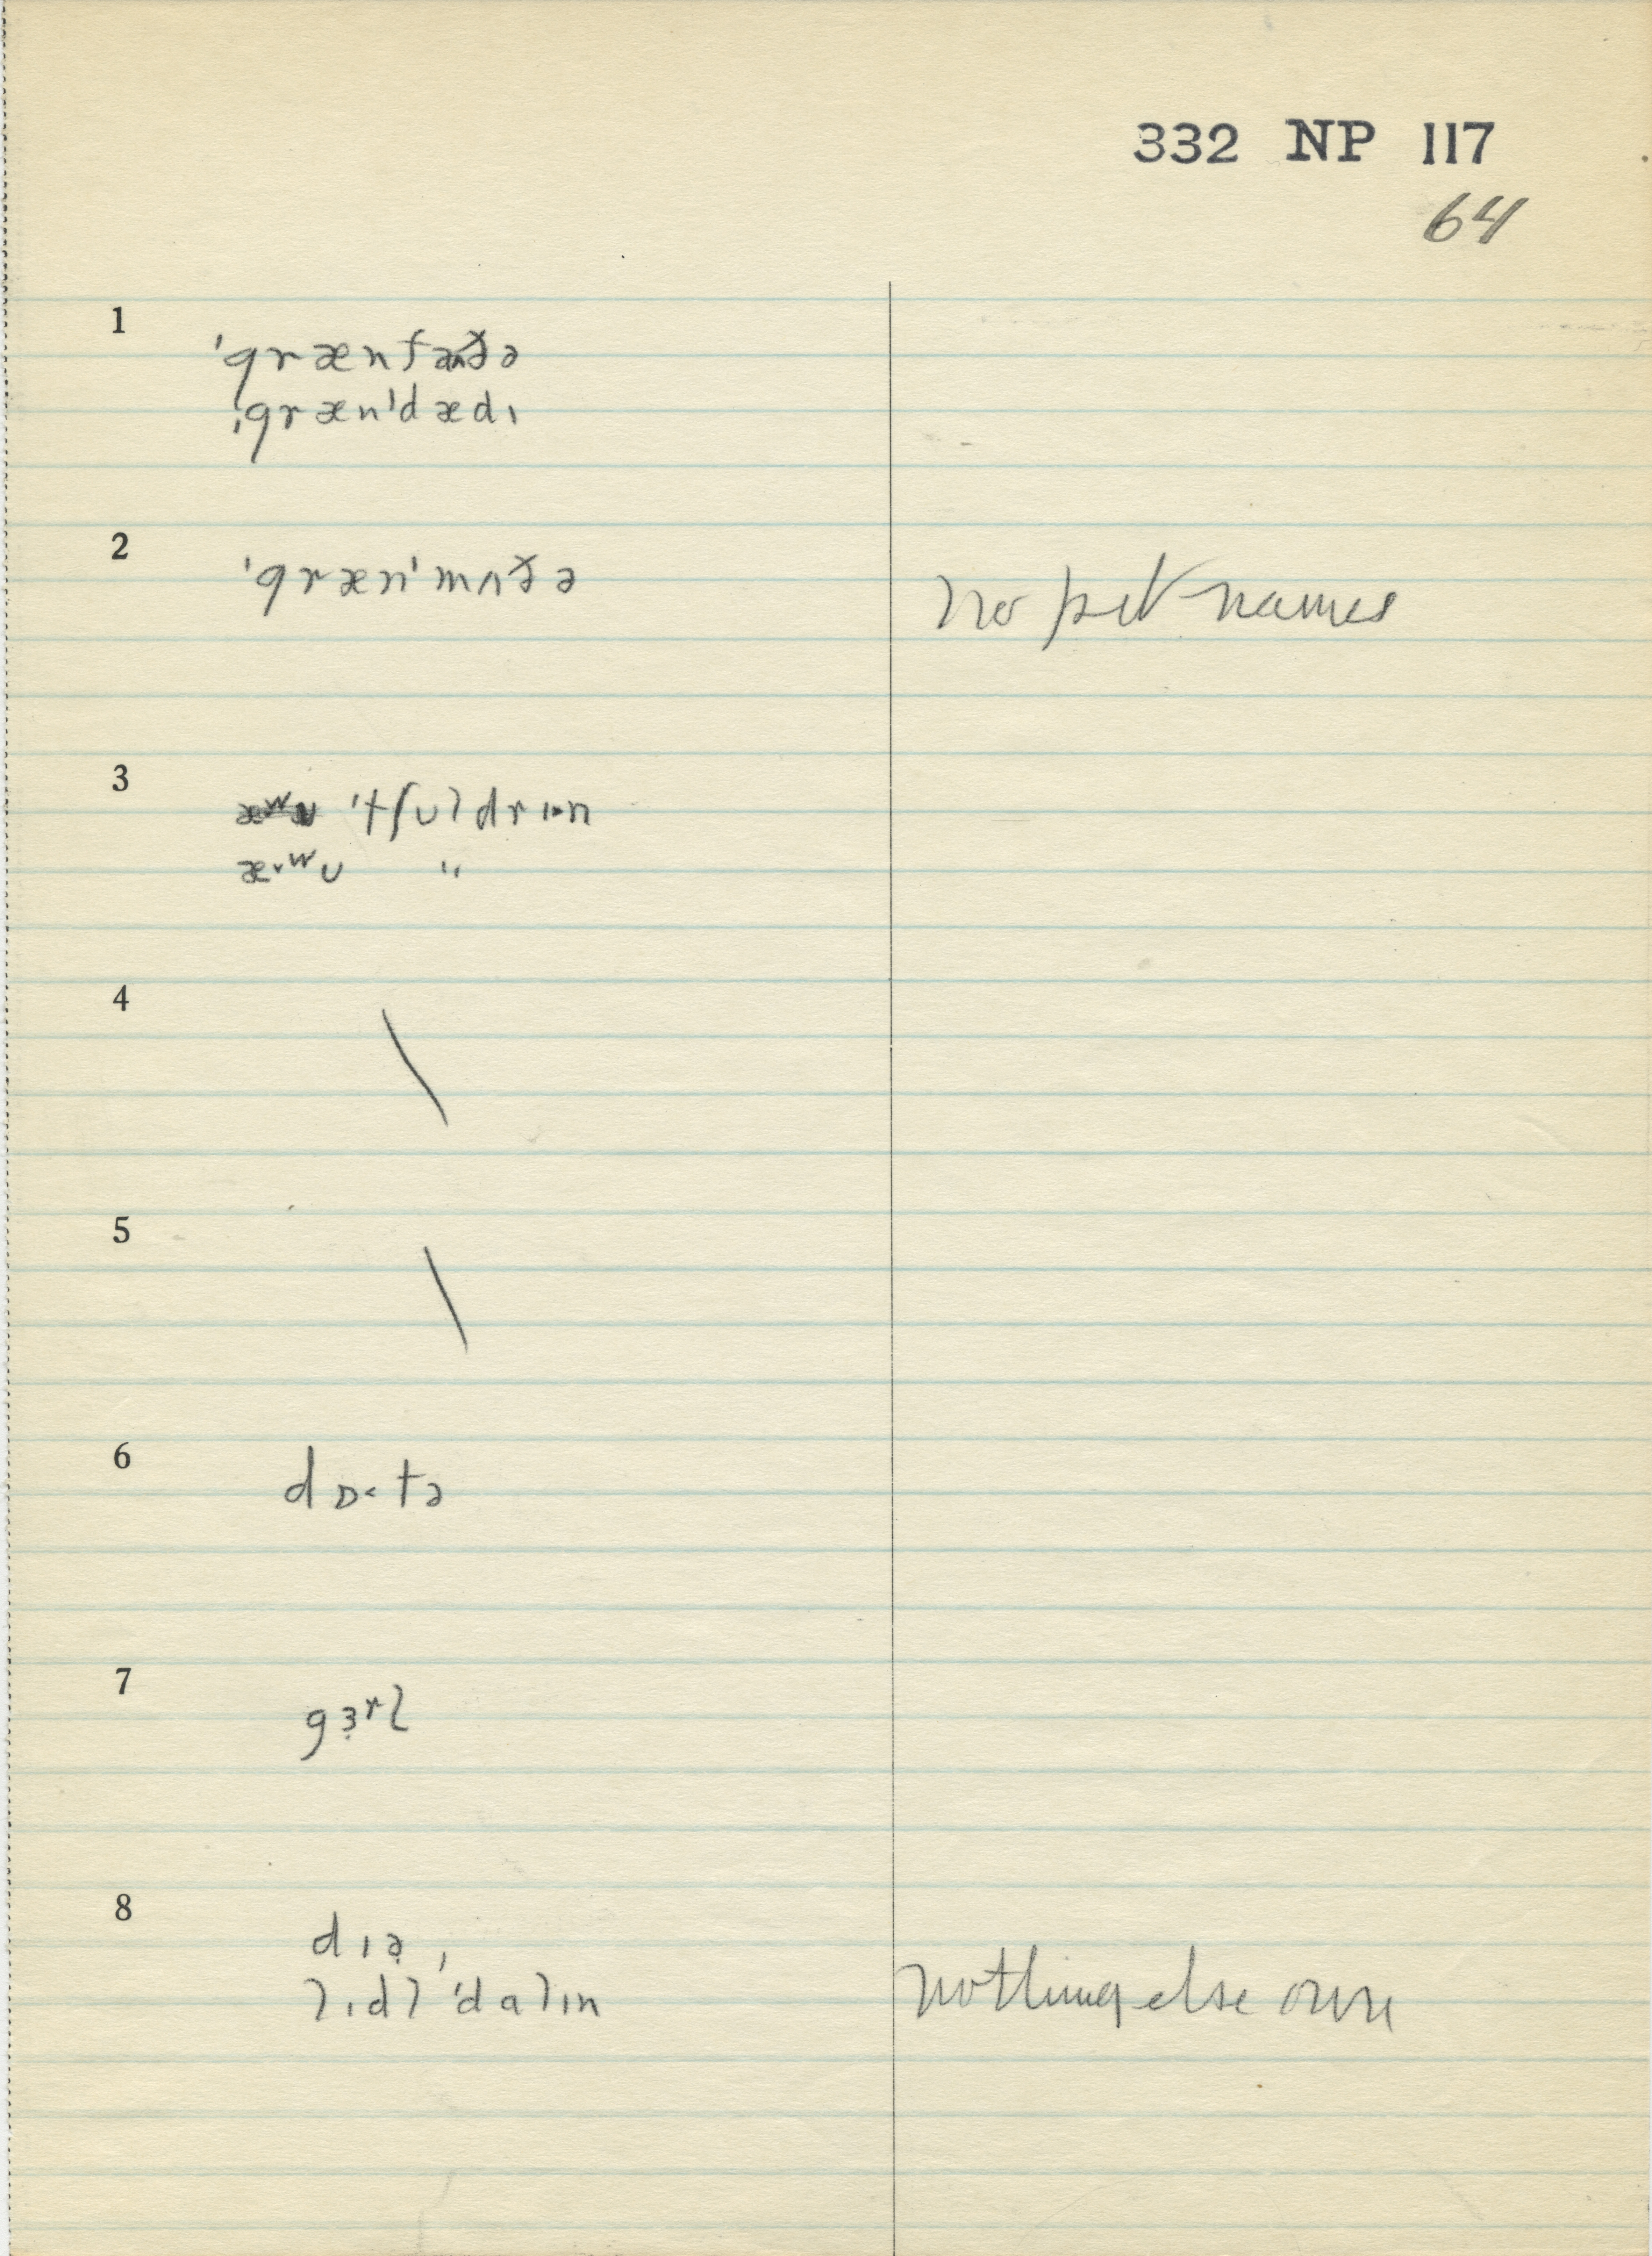 332 NP 117
64
1
ˈgrænfɑðə
ˌgrænˈdædɪ
2
ˈgrænˈmʌðə no pet names
3
ˈtʃʊldrɪn
æˑʷʊ "
4 \
5 \
6
dɒ˂tə
7
gɜʳl
8
dɪə̣,
lɪdl ˈdɑlɪn nothing else